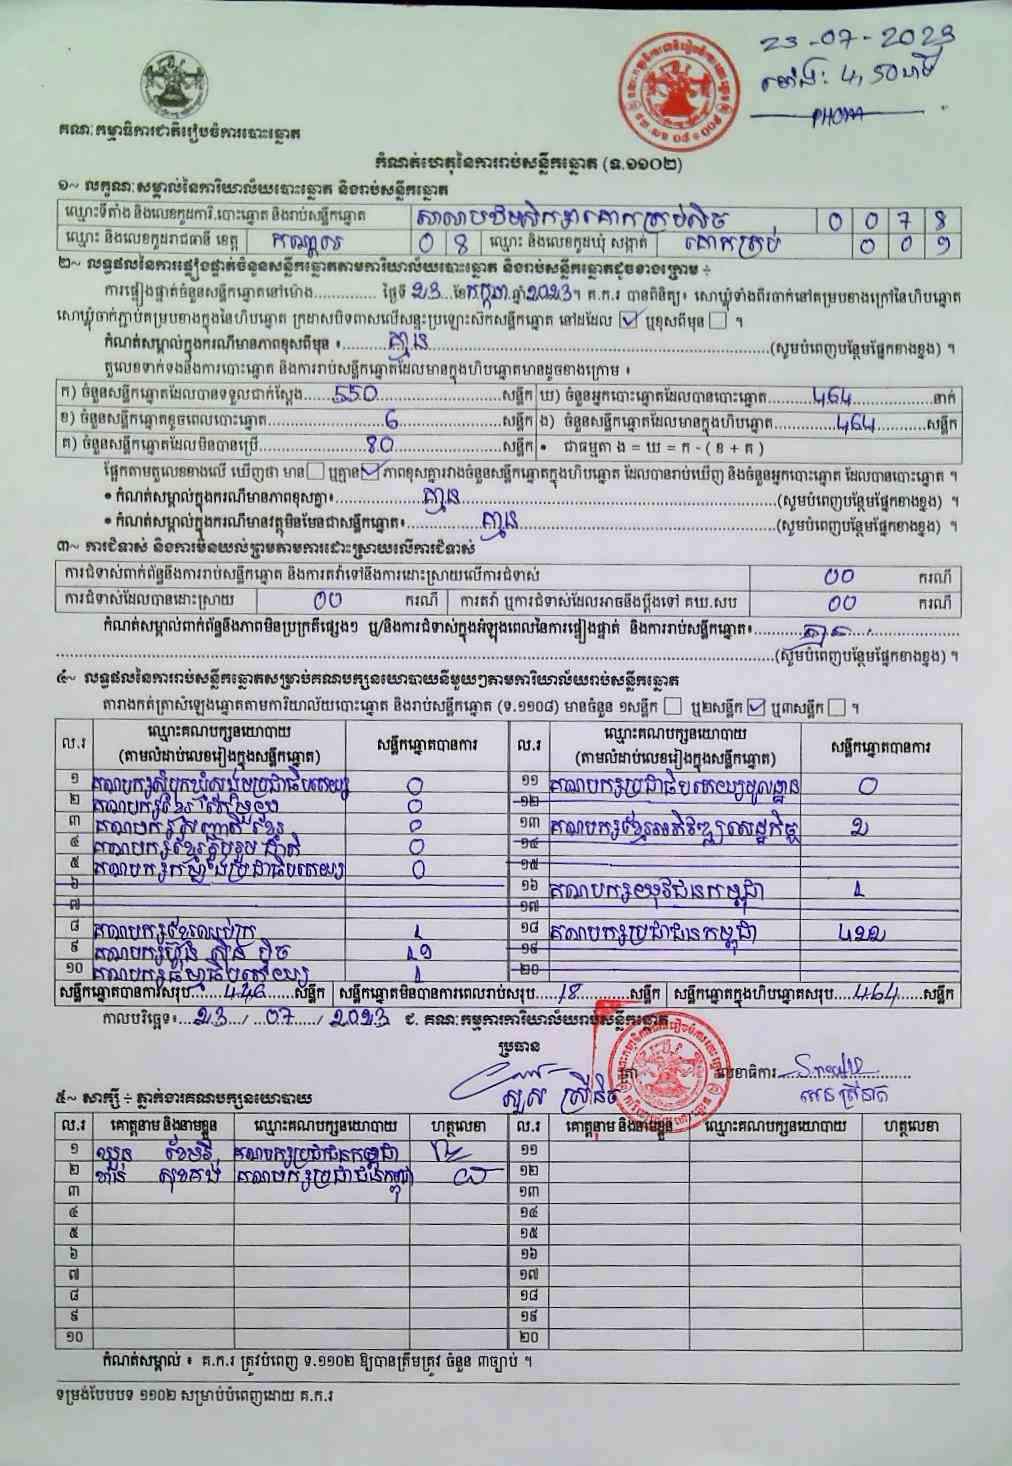 23-07-2023
ម៉ោង: 4,50នាទី
PHOVA
គណៈកម្មាធិការជាតិរៀបចំការបោះឆ្នោត
កំណត់ហេតុនៃការរាប់សន្លឹកឆ្នោត (ទ.១១០២)
១~ លក្ខណៈសម្គាល់នៃការិយាល័យបោះឆ្នោត និងរាប់សន្លឹកឆ្នោត
ឈ្មោះទីតាំង និងលេខកូដការិ.បោះឆ្នោត និងរាប់សន្លឹកឆ្នោត 0 0 7 8
ឈ្មោះ និងលេខកូដរាជធានី ខេត្ត កណ្តាល 0 8 ឈ្មោះ និងលេខកូដឃុំ សង្កាត់ គោកត្រប់ 0 0 9
២~ លទ្ធផលនៃការផ្ទៀងផ្ទាត់ចំនួនសន្លឹកឆ្នោតតាមការិយាល័យបោះឆ្នោត និងរាប់សន្លឹកឆ្នោតដូចខាងក្រោម ÷
ការផ្ទៀងផ្ទាត់ចំនួនសន្លឹកឆ្នោតនៅម៉ោង.............. ថ្ងៃទី 23 ខែ កក្កដា ឆ្នាំ 2023។ គ.ក.រ បានពិនិត្យ៖ សោឃ្លុំទាំងពីរចាក់នៅគម្របខាងក្រៅនៃហិបឆ្នោត
សោឃ្លុំចាក់ភ្ជាប់គម្របខាងក្នុងនៃហិបឆ្នោត ក្រដាសបិទពាសលើសន្ទះប្រឡោះស៊កសន្លឹកឆ្នោត នៅដដែល ☑ ឬខុសពីមុន ☐ ។
កំណត់សម្គាល់ក្នុងករណីមានភាពខុសពីមុន ៖ គ្មាន (សូមបំពេញបន្ថែមផ្នែកខាងខ្នង) ។
តួលេខទាក់ទងនឹងការបោះឆ្នោត និងការរាប់សន្លឹកឆ្នោតដែលមានក្នុងហិបឆ្នោតមានដូចខាងក្រោម ៖
ក) ចំនួនសន្លឹកឆ្នោតដែលបានទទួលជាក់ស្តែង 550 សន្លឹក ឃ) ចំនួនអ្នកបោះឆ្នោតដែលបានបោះឆ្នោត 464 នាក់
ខ) ចំនួនសន្លឹកឆ្នោតខូចពេលបោះឆ្នោត 6 សន្លឹក ង) ចំនួនសន្លឹកឆ្នោតដែលមានក្នុងហិបឆ្នោត 464 សន្លឹក
គ) ចំនួនសន្លឹកឆ្នោតដែលមិនបានប្រើ 80 សន្លឹក • ជាធម្មតា ង = ឃ = ក - ( ខ + គ )
ផ្អែកតាមតួលេខខាងលើ ឃើញថា មាន ☐ ឬគ្មាន ☑ ភាពខុសគ្នារវាងចំនួនសន្លឹកឆ្នោតក្នុងហិបឆ្នោត ដែលបានរាប់ឃើញ និងចំនួនអ្នកបោះឆ្នោត ដែលបានបោះឆ្នោត ។
• កំណត់សម្គាល់ក្នុងករណីមានភាពខុសគ្នា៖ គ្មាន (សូមបំពេញបន្ថែមផ្នែកខាងខ្នង) ។
• កំណត់សម្គាល់ក្នុងករណីមានវត្ថុមិនមែនជាសន្លឹកឆ្នោត៖ គ្មាន (សូមបំពេញបន្ថែមផ្នែកខាងខ្នង) ។
៣~ ការជំទាស់ និងការមិនយល់ព្រមតាមការដោះស្រាយលើការជំទាស់
ការជំទាស់ពាក់ព័ន្ធនឹងការរាប់សន្លឹកឆ្នោត និងការតវ៉ាទៅនឹងការដោះស្រាយលើការជំទាស់ 00 ករណី
ការជំទាស់ដែលបានដោះស្រាយ 00 ករណី ការតវ៉ា ឬការជំទាស់ដែលអាចនឹងប្តឹងទៅ គឃ.សប 00 ករណី
កំណត់សម្គាល់ពាក់ព័ន្ធនឹងភាពមិនប្រក្រតីផ្សេងៗ ឬ/និងការជំទាស់ក្នុងអំឡុងពេលនៃការផ្ទៀងផ្ទាត់ និងការរាប់សន្លឹកឆ្នោត៖ គ្មាន
(សូមបំពេញបន្ថែមផ្នែកខាងខ្នង) ។
៤~ លទ្ធផលនៃការរាប់សន្លឹកឆ្នោតសម្រាប់គណបក្សនយោបាយនីមួយៗតាមការិយាល័យរាប់សន្លឹកឆ្នោត
តារាងកត់ត្រាសំឡេងឆ្នោតតាមការិយាល័យបោះឆ្នោត និងរាប់សន្លឹកឆ្នោត (ទ.១១០៨) មានចំនួន ១សន្លឹក ☐ ឬ២សន្លឹក ☑ ឬ៣សន្លឹក ☐ ។
ល.រ ឈ្មោះគណបក្សនយោបាយ (តាមលំដាប់លេខរៀងក្នុងសន្លឹកឆ្នោត) សន្លឹកឆ្នោតបានការ ល.រ ឈ្មោះគណបក្សនយោបាយ (តាមលំដាប់លេខរៀងក្នុងសន្លឹកឆ្នោត) សន្លឹកឆ្នោតបានការ
១ គណបក្សសំបុកឃ្មុំសង្គមប្រជាធិបតេយ្យ 0 ១១ គណបក្សប្រជាធិបតេយ្យមូលដ្ឋាន 0
២ គណបក្សខ្មែរ 0 ១២
៣ គណបក្សសញ្ជាតិខ្មែរ 0 ១៣ គណបក្សខ្មែរអភិវឌ្ឍសេដ្ឋកិច្ច 2
៤ គណបក្សខ្មែររួបរួមជាតិ 0 ១៤
៥ គណបក្សកម្លាំងប្រជាធិបតេយ្យ 0 ១៥
៦ ១៦ គណបក្សយុវជនកម្ពុជា 1
៧ ១៧
៨ គណបក្សខ្មែរឈប់ក្រ 1 ១៨ គណបក្សប្រជាជនកម្ពុជា 422
៩ គណបក្សហ្វ៊ុនស៊ិនប៉ិច ១៩
១០ គណបក្សធម្មាធិបតេយ្យ 1 ២០
សន្លឹកឆ្នោតបានការសរុប 446 សន្លឹក សន្លឹកឆ្នោតមិនបានការពេលរាប់សរុប 18 សន្លឹក សន្លឹកឆ្នោតក្នុងហិបឆ្នោតសរុប 464 សន្លឹក
កាលបរិច្ឆេទ៖ 23 / 07 / 2023 ជ. គណៈកម្មការការិយាល័យរាប់សន្លឹកឆ្នោត
ប្រធាន
លេខាធិការ
សួស ស្រីនិច
៥~ សាក្សី ÷ ភ្នាក់ងារគណបក្សនយោបាយ
ល.រ គោត្តនាម និងនាមខ្លួន ឈ្មោះគណបក្សនយោបាយ ហត្ថលេខា ល.រ គោត្តនាម និងនាមខ្លួន ឈ្មោះគណបក្សនយោបាយ ហត្ថលេខា
១ គណបក្សប្រជាជនកម្ពុជា ១១
២ គណបក្សប្រជាជនកម្ពុជា ១២
៣ ១៣
៤ ១៤
៥ ១៥
៦ ១៦
៧ ១៧
៨ ១៨
៩ ១៩
១០ ២០
កំណត់សម្គាល់ ៖ គ.ក.រ ត្រូវបំពេញ ទ.១១០២ ឱ្យបានត្រឹមត្រូវ ចំនួន ៣ច្បាប់ ។
ទម្រង់បែបបទ ១១០២ សម្រាប់បំពេញដោយ គ.ក.រ